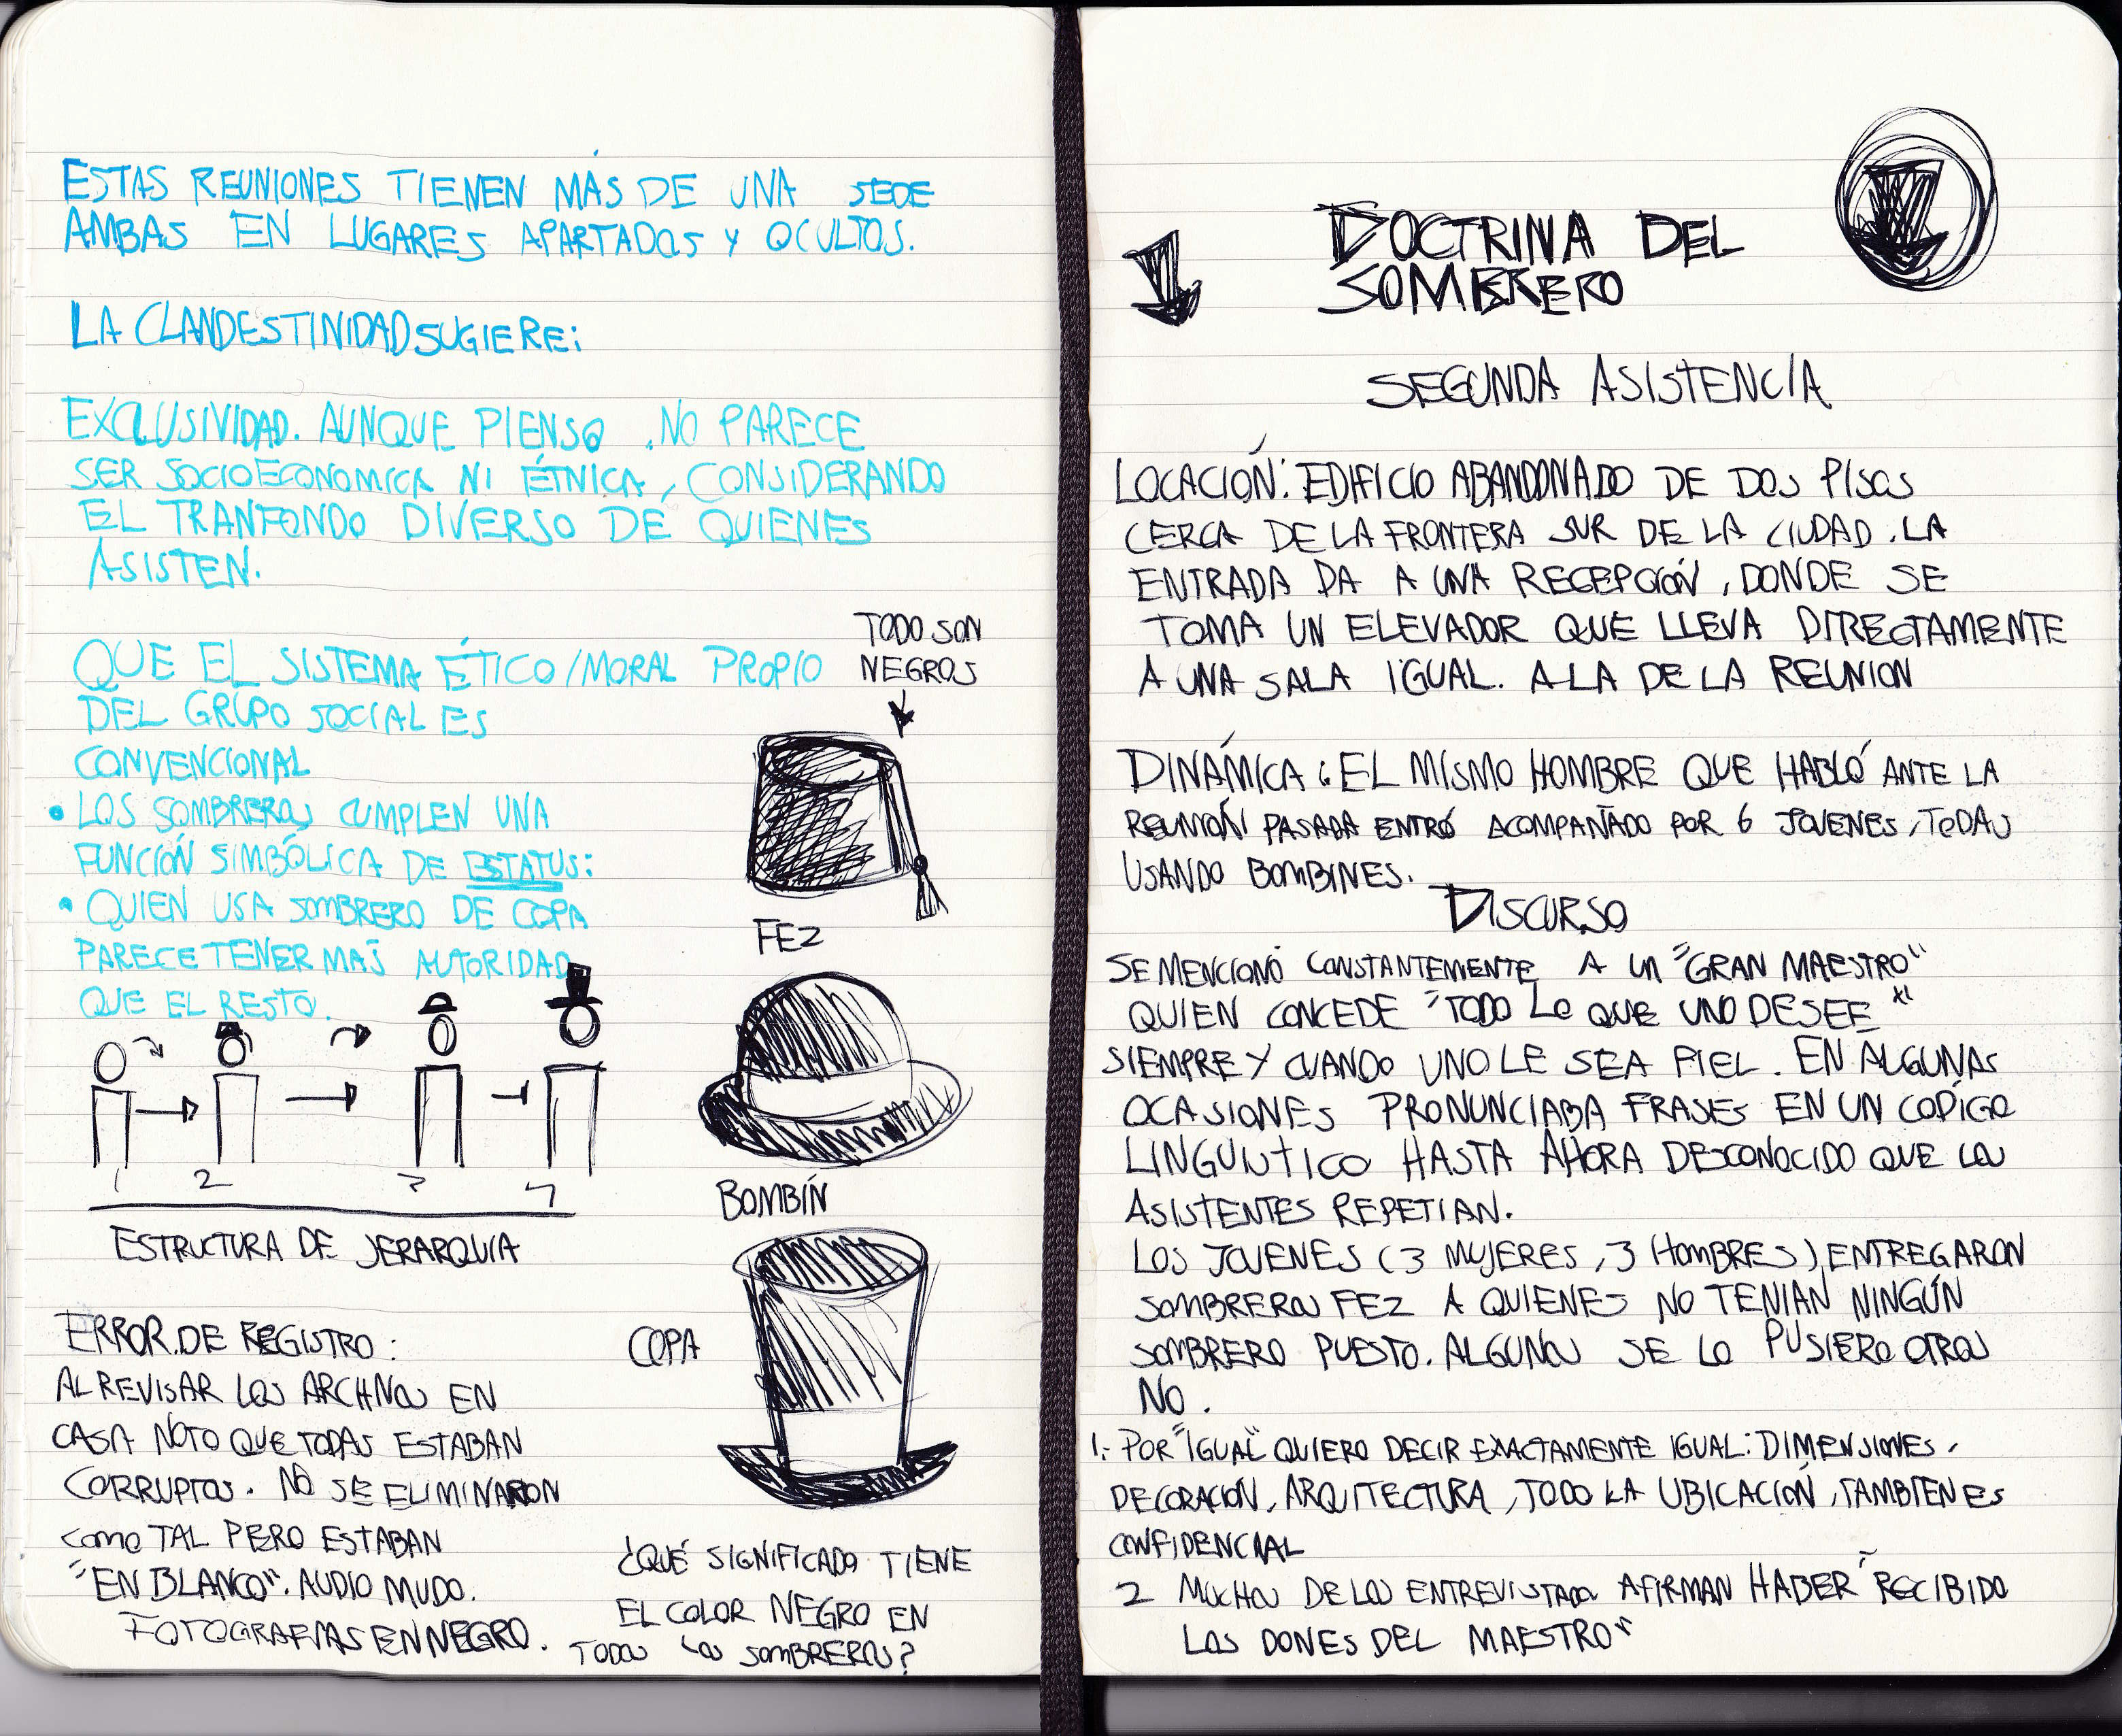 ESTAS REUNIONES TIENEN MÁS DE UNA SEDE
AMBAS EN LUGARES APARTADOS Y OCULTOS.
LA CLANDESTINIDAD SUGIERE:
EXCLUSIVIDAD. AUNQUE PIENSO NO PARECE
SER SOCIOECONOMICA NI ÉTNICA, CONSIDERANDO
EL TRANFONDO DIVERSO DE QUIENES
ASISTEN.
QUE EL SISTEMA ÉTICO/MORAL PROPIO
DEL GRUPO SOCIAL ES
CONVENCIONAL
• LOS SOMBREROS CUMPLEN UNA
FUNCIÓN SIMBÓLICA DE ESTATUS:
• QUIEN USA SOMBRERO DE COPA
PARECE TENER MAS AUTORIDAD
QUE EL RESTO.
1 2 3 4
ESTRUCTURA DE JERARQUIA
ERROR DE REGISTRO:
AL REVISAR LOS ARCHIVOS EN
CASA NOTO QUE TODAS ESTABAN
CORRUPTOS. NO SE ELIMINARON
COMO TAL PERO ESTABAN
"EN BLANCO". AUDIO MUDO.
FOTOGRAFIAS EN NEGRO.
TODO SON
NEGROS
FEZ
BOMBÍN
COPA
¿QUÉ SIGNIFICADO TIENE
EL COLOR NEGRO EN
TODOS LOS SOMBREROS?
DOCTRINA DEL
SOMBRERO
SEGUNDA ASISTENCIA
LOCACIÓN: EDIFICIO ABANDONADO DE DOS PISOS
CERCA DE LA FRONTERA SUR DE LA CIUDAD. LA
ENTRADA DA A UNA RECEPCIÓN, DONDE SE
TOMA UN ELEVADOR QUE LLEVA DIRECTAMENTE
A UNA SALA IGUAL. A LA DE LA REUNION
DINÁMICA: EL MISMO HOMBRE QUE HABLÓ ANTE LA
REUNIÓN PASADA ENTRÓ ACOMPAÑADO POR 6 JOVENES, TODAS
USANDO BOMBINES.
DISCURSO
SE MENCIONÓ CONSTANTEMENTE A UN "GRAN MAESTRO"
QUIEN CONCEDE "TODO LO QUE UNO DESEE"
SIEMPRE Y CUANDO UNO LE SEA FIEL. EN ALGUNAS
OCASIONES PRONUNCIABA FRASES EN UN CODIGO
LINGUISTICO HASTA AHORA DESCONOCIDO QUE LOS
ASISTENTES REPETIAN.
LOS JOVENES (3 MUJERES, 3 HOMBRES) ENTREGARON
SOMBREROS FEZ A QUIENES NO TENIAN NINGÚN
SOMBRERO PUESTO. ALGUNOS SE LO PUSIERO OTROS
NO.
1.- POR "IGUAL" QUIERO DECIR EXACTAMENTE IGUAL: DIMENSIONES,
DECORACIÓN, ARQUITECTURA, TODO LA UBICACIÓN, TAMBIEN ES
CONFIDENCIAL
2 MUCHOS DE LOS ENTREVISTADOS AFIRMAN HABER "RECIBIDO
LOS DONES DEL MAESTRO"